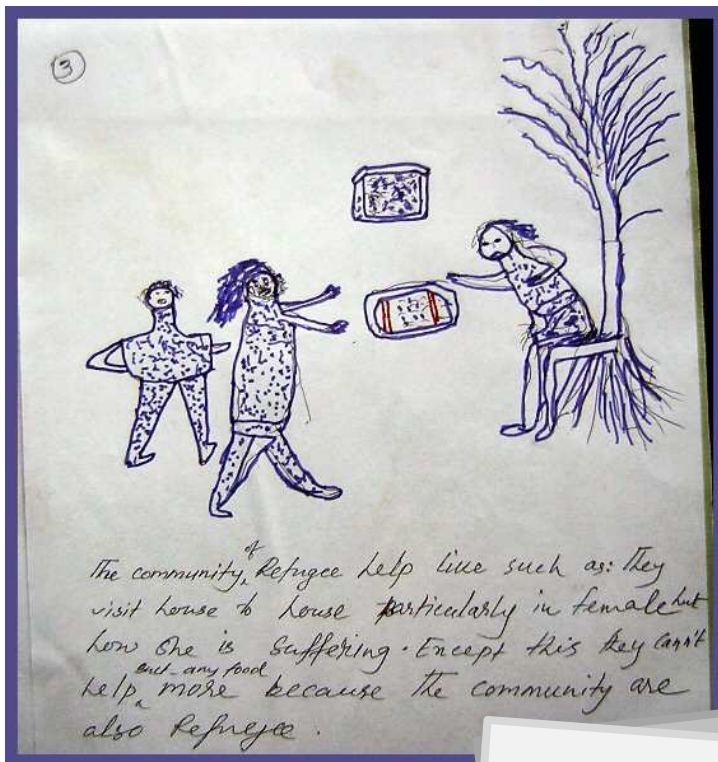 3
The community of Refugee help live such as: They
visit house to house particularly in female hut
how she is suffering. Except this they cann't
help and any food more because The community are
also Refugee.